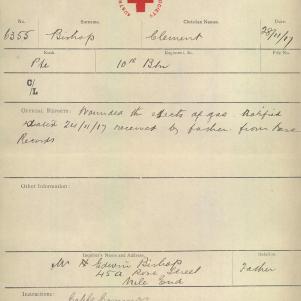 SOCIETY
No. Surname. Christian Names. Date.
6355 Bishop Clement 28/11/17
Rank Regiment, &c. File No.
Pte 10th Bn
C/L
OFFICIAL REPORTS: Wounded the effects of gas. Notified
dated 24/11/17 received by father from Base
Records
Other Information:
Inquirer's Name and Address. Relation.
Mr H Edwin Bishop Father
45A Rose Street
Mile End
Instructions: